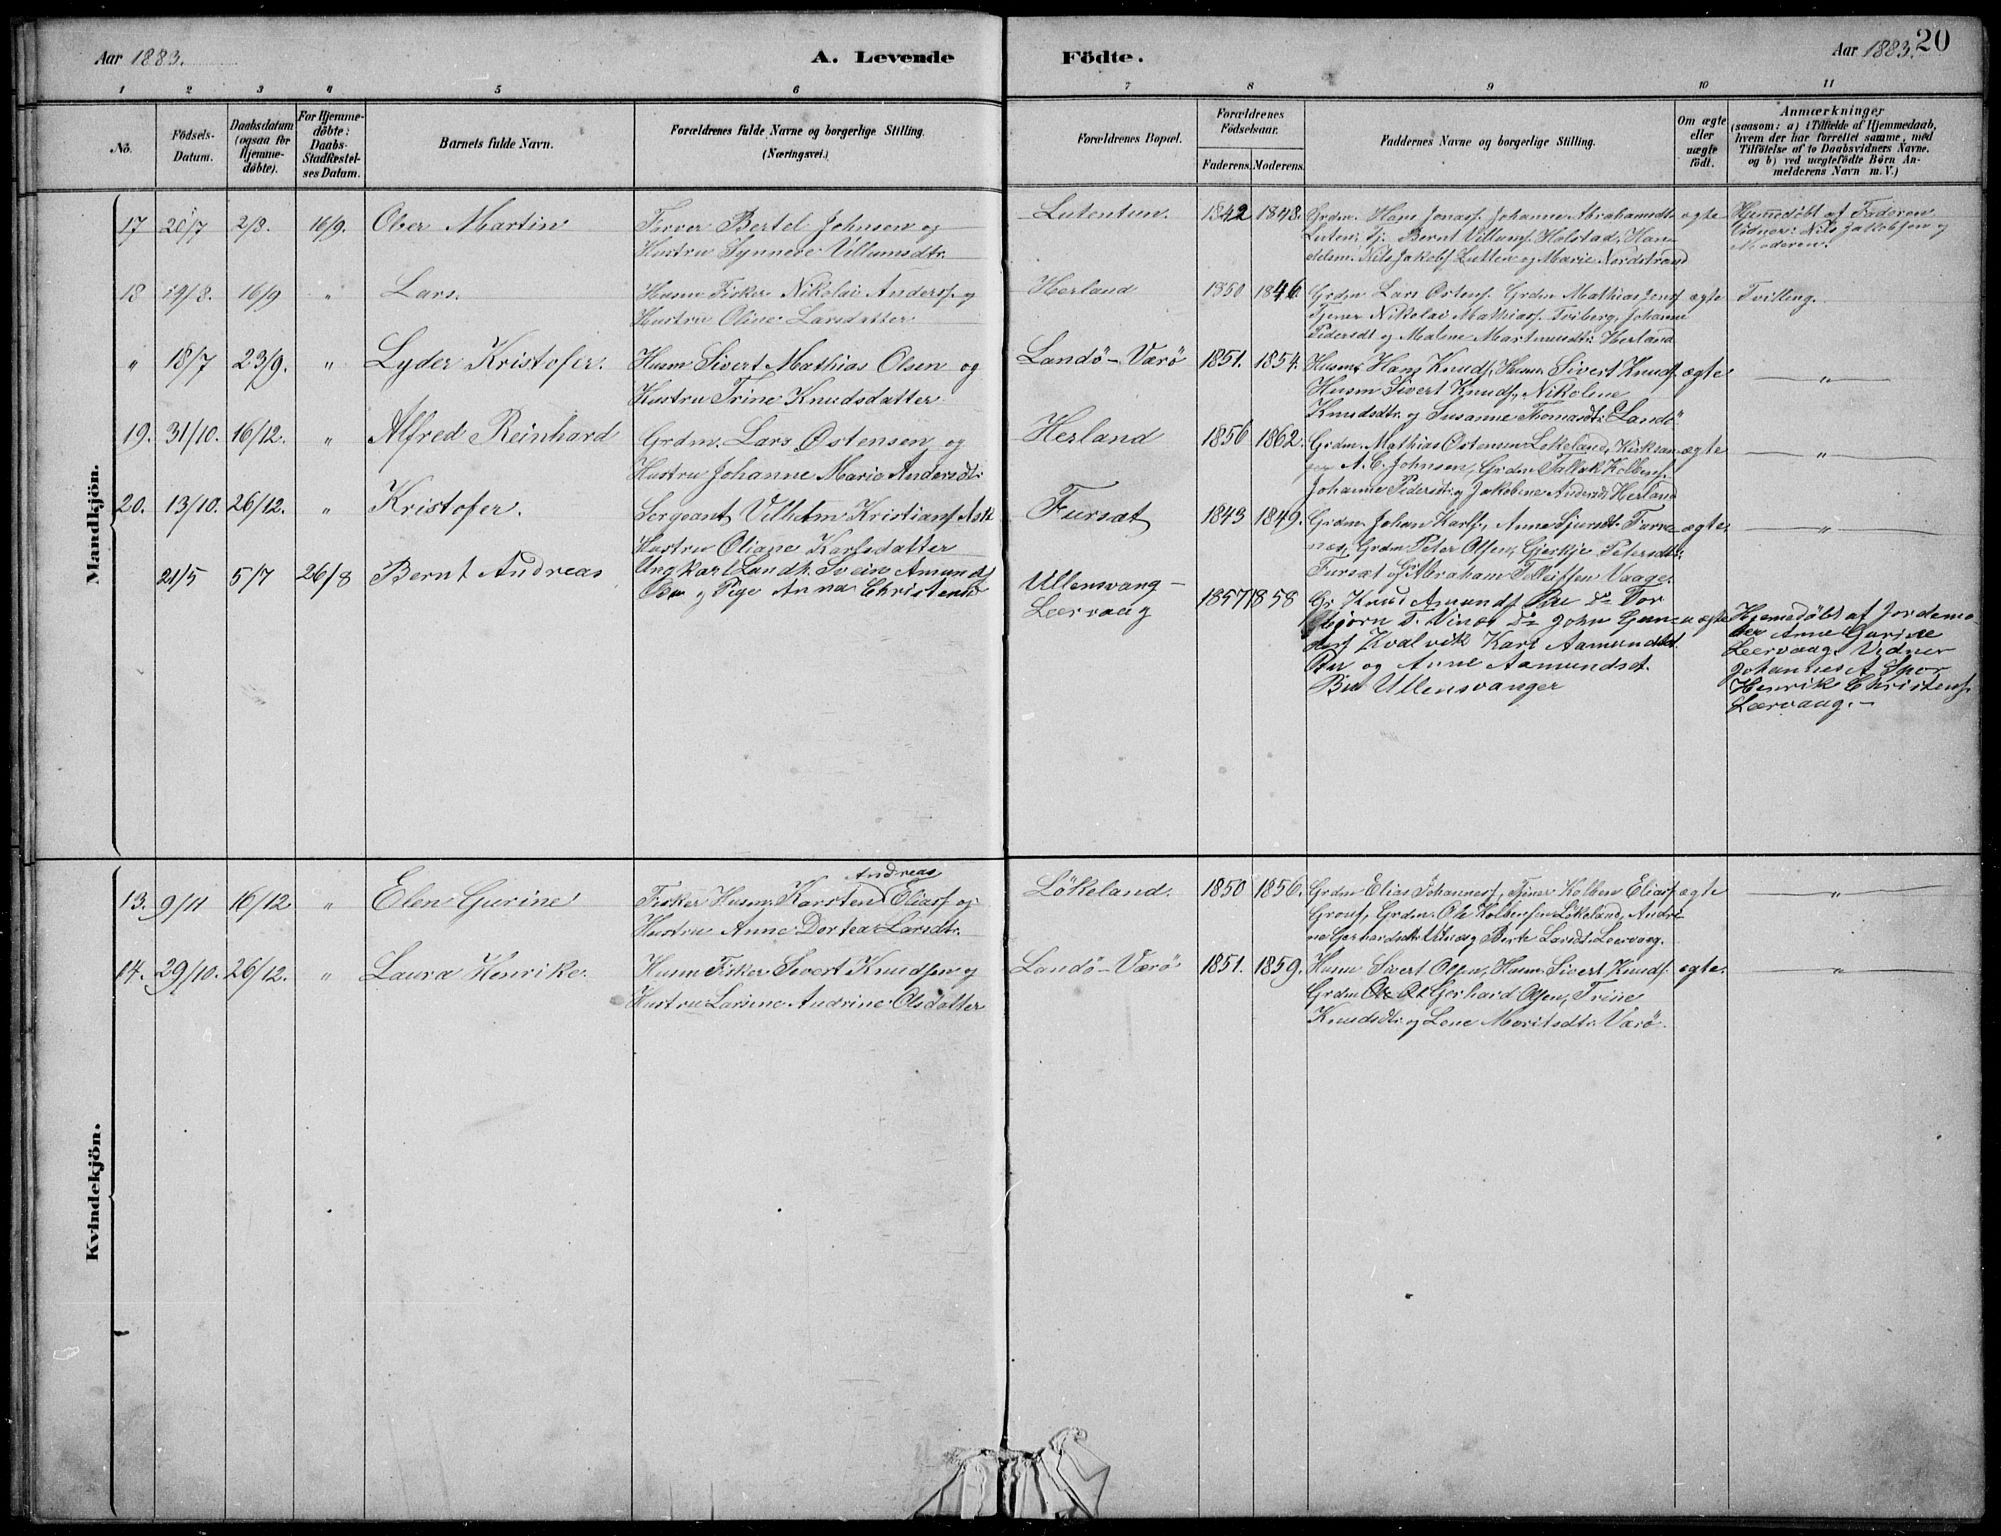 Aar 1883.
A. Levende
Födte.
Aar 1883.
20
1 2 3 4 5 6 7 8 9 10 11
No.
Födsels-
Datum.
Daabsdatum
(ogsaa for
Hjemme-
döbte).
For Hjemme-
döbte:
Daabs-
Stadfæstel-
ses Datum.
Barnets fulde Navn.
Forældrenes fulde Navne og borgerlige Stilling.
(Næringsvei.)
Forældrenes Bopæl.
Forældrenes
Födselsaar.
Faderens. Moderens.
Faddernes Navne og borgerlige Stilling.
Om ægte
eller
uægte
födt.
Anmærkninger
(saasom: a) i Tilfælde af Hjemmedaab,
hvem der har forrettet samme, med
Tilföielse af to Daabsvidners Navne,
og b) ved uægtefödte Börn An-
melderens Navn m. V.)
Mandkjön.
17 20/7 2/8. 16/9. Ober Martin
Farver Bertel Johnsen og
Hustru Synneve Villumsdtr.
Lutentun.
1842 1848.
Grdm. Hans Jonass. Johanne Abrahamsdtr
Luten, Bernt Villums. Holstad, Han-
delsm. Nils Jakobs. Lutten og Marie Nordstrand
ægte
Hjemmedöbt af Faderen
Vidner: Nils Jakobsen og
Moderen.
18 19/8. 16/9 " Lars.
Husm Fisker Nikolai Anderss. og
Hustru Oline Larsdatter
Herland
1850 1846.
Grdm Lars Ostens. Grdm Mathias Jens
Tjener Nikolai Mathiass. Tviberg, Johanne
Pedersdt og Malene Martinusdtr Herland
ægte
Tvilling.
" 18/7 23/9. " Lyder Kristofer.
Husm Sivert Mathias Olsen og
Hustru Trine Knudsdatter
Landö-Værö
1851. 1854.
Husm. Hans Knuds, Husm. Sivert Knuds.
Husm Sivert Knuds, Nikolene
Knudsdtr. og Susanne Thomasdtr Landö
ægte
"
19. 31/10. 16/12. " Alfred Reinhard
Grdm. Lars Östensen og
Hustru Johanne Marie Andersdtr
Herland
1856 1862.
Grdm. Mathias Ostensen Lökeland, Kirksan-
ger A. C. Johnsen, Grdm Tallak Kolbens.
Johanne Pedersdtr og Jakobine Andersdt Herland
ægte
"
20. 13/10. 26/12. " Kristofer.
Sergeant Vilhelm Kristians. Ask
Hustru Oliane Karlsdatter
Fursæt
1843 1849.
Grdm. Johan Karls., Anne Sjursdt. Turve-
næs, Grdm Peter Olsen, Gjerkje Petersdtr
Fursæt og Abraham Tollefsen Vaage.
ægte.
"
21/5 5/7 26/8 Bernt Andreas
Ungkarl Landh. Svein Amunds
Bu og Pige Anna Christensd
Ullensvang -
Leervaag
1857 1858
G. Knud Amunds Bu Do Tor
bjørn T. Vinæs Do John Gun-
ders Kvalvik Kari Aamundsdt.
Bu og Anne Aamundsdt.
Bu Ullensvanger
uægte
Hjemedöbt af Jordemo-
der Anne Gurine
Leervaag Vidner
Johannes A Spor
Henrik Christens.
Leervaag. -
Kvindekjön.
13. 9/11 16/12 " Elen Gurine
Andreas
Fisker Husm. Karsten Eliass og
Hustru Anne Dortea Larsdtr.
Lökeland.
1850 1856.
Grdm Elias Johanness, Tjener Kolben Eliass
Grout, Grdm. Ole Kolbensen Lökeland, Andri-
ne Gerhardsdtr Utnæs og Berte Larsdt. Leervaag.
ægte
"
14. 29/10. 26/12. " Laura Henrike.
Husm Fisker Sivert Knudsen og
Hustru Larsine Andrine Olsdatter
Landö-Værö
1851. 1859.
Husm Sivert Olsen, Husm. Sivert Knuds.
Grdm Ole Gerhard Olsen, Trine
Knudsdtr og Lene Moritsdtr Værö.
ægte.
"